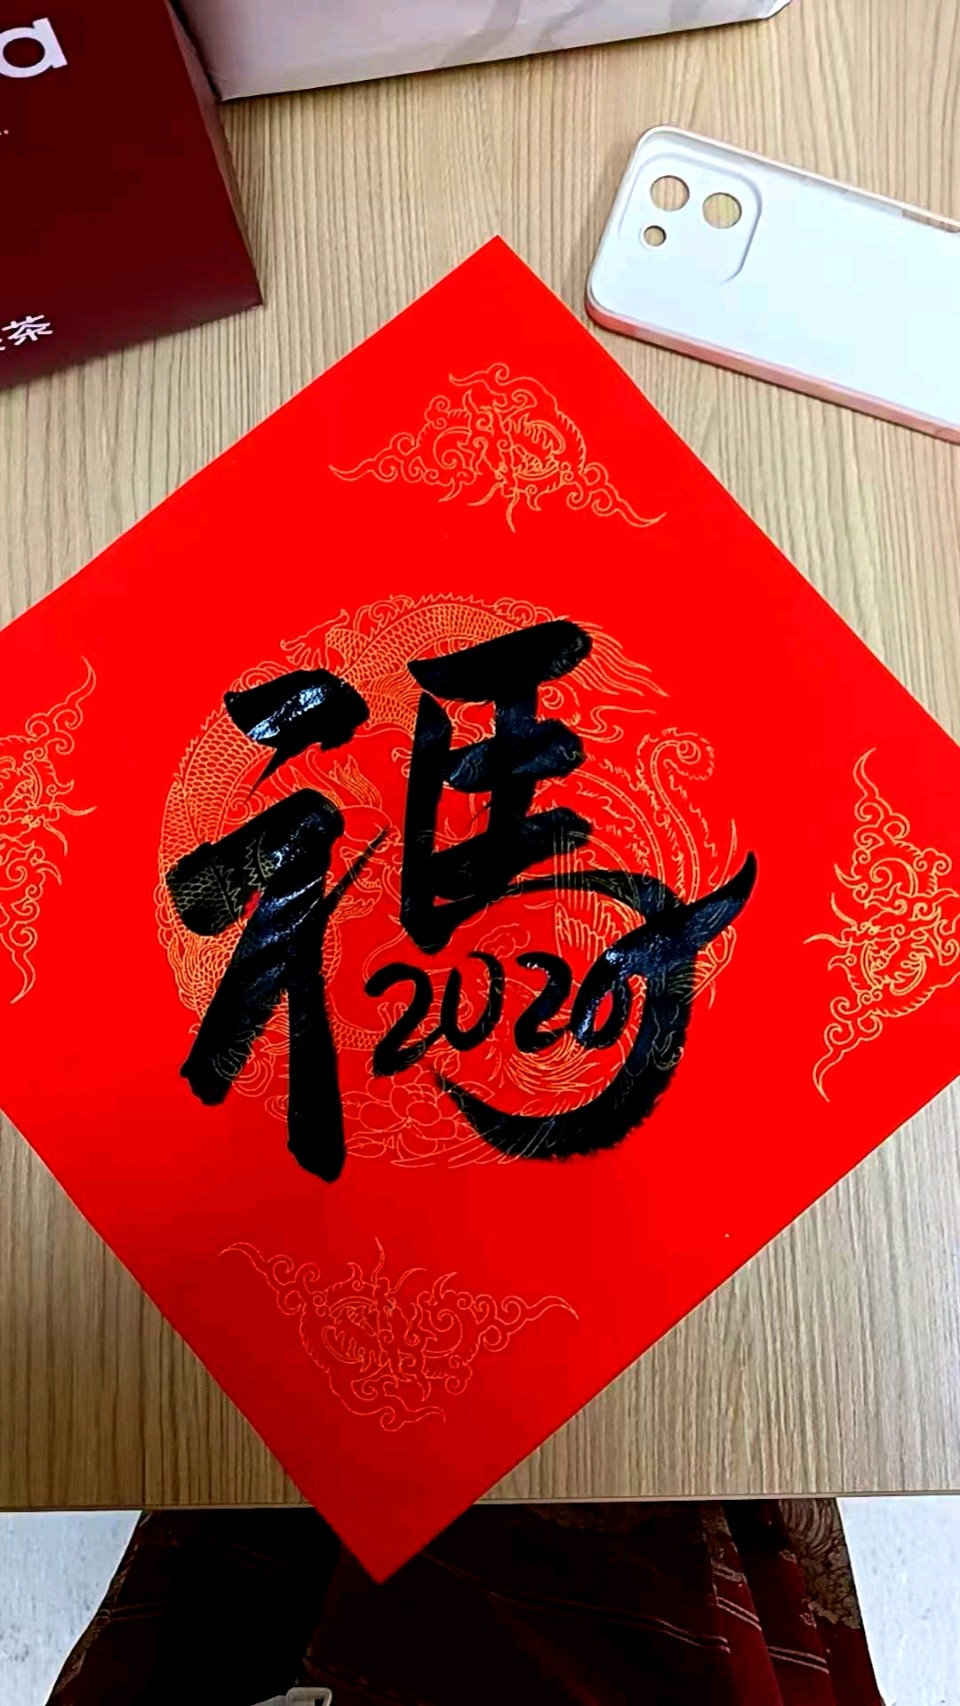 a
茶
福
2026